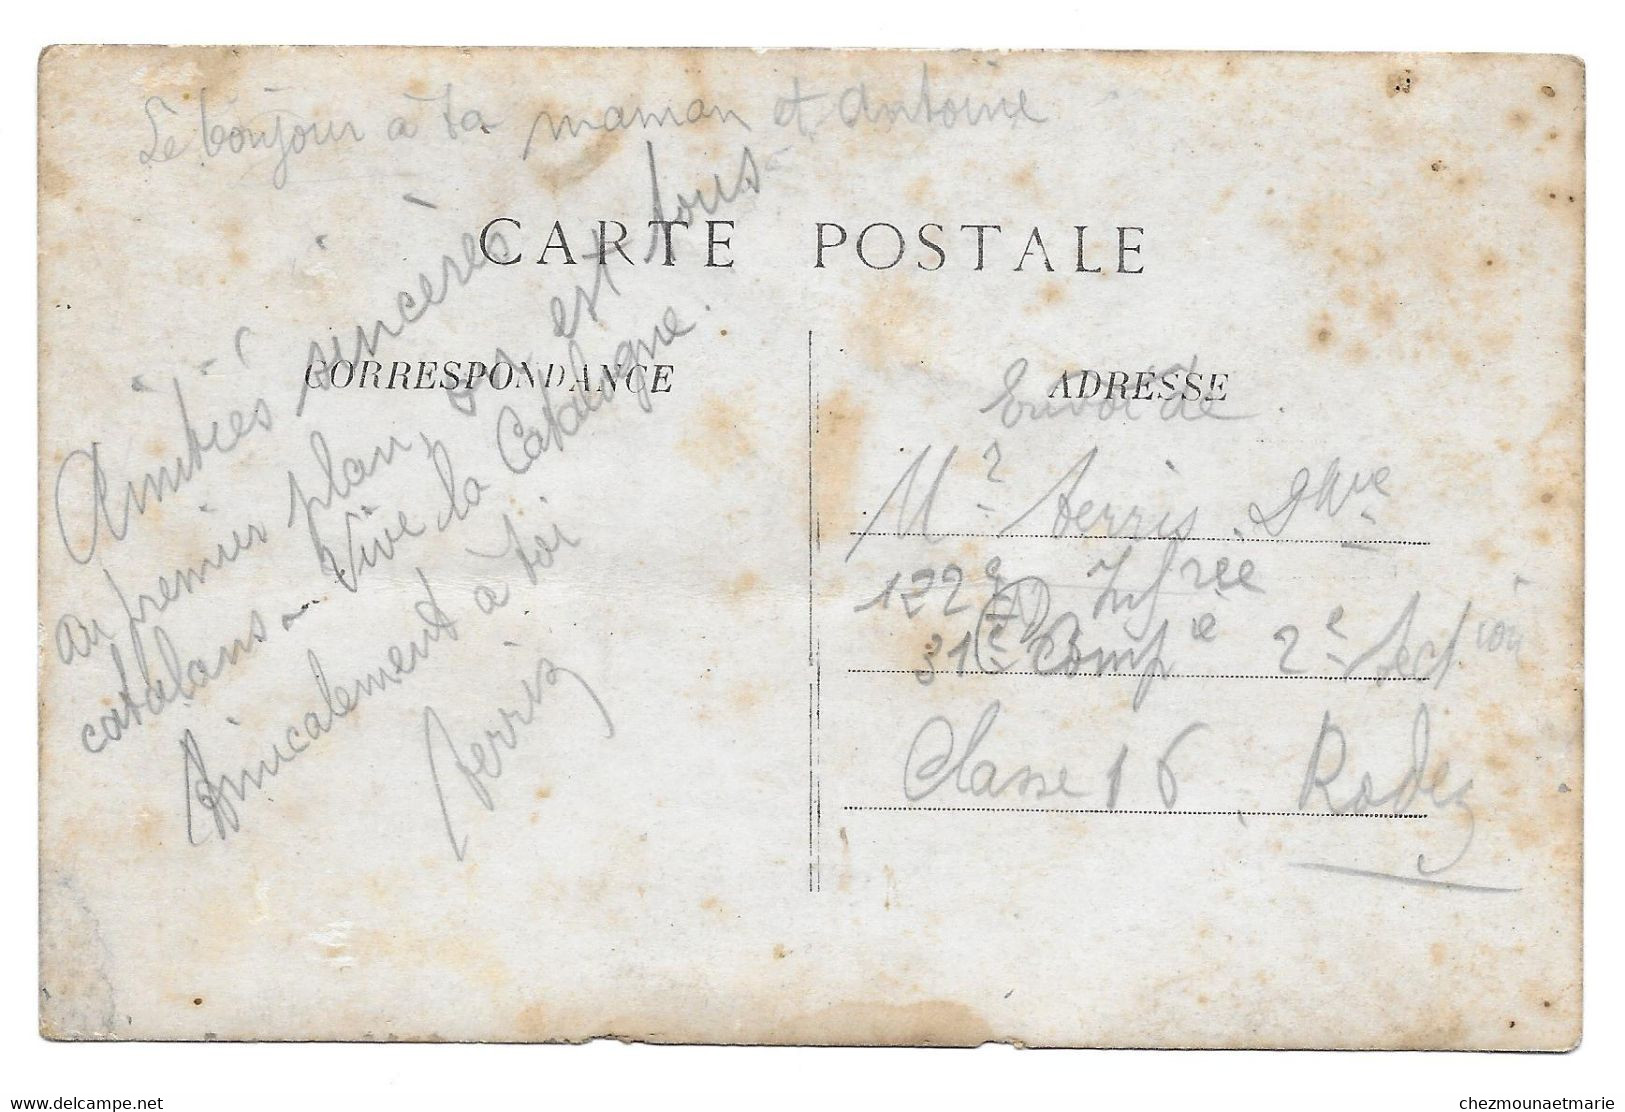 Le bonjour à ta maman et Antoine
CARTE POSTALE
CORRESPONDANCE
Amitiés sincères
Au premier plan, on est tous
catalans - Vive la Catalogne.
Amicalement à toi
Serris
ADRESSE
Envoi de
Mr Serris
122e Infrie
31e Compie 2e Section
Classe 16 Rodez
chezmounaetmarie